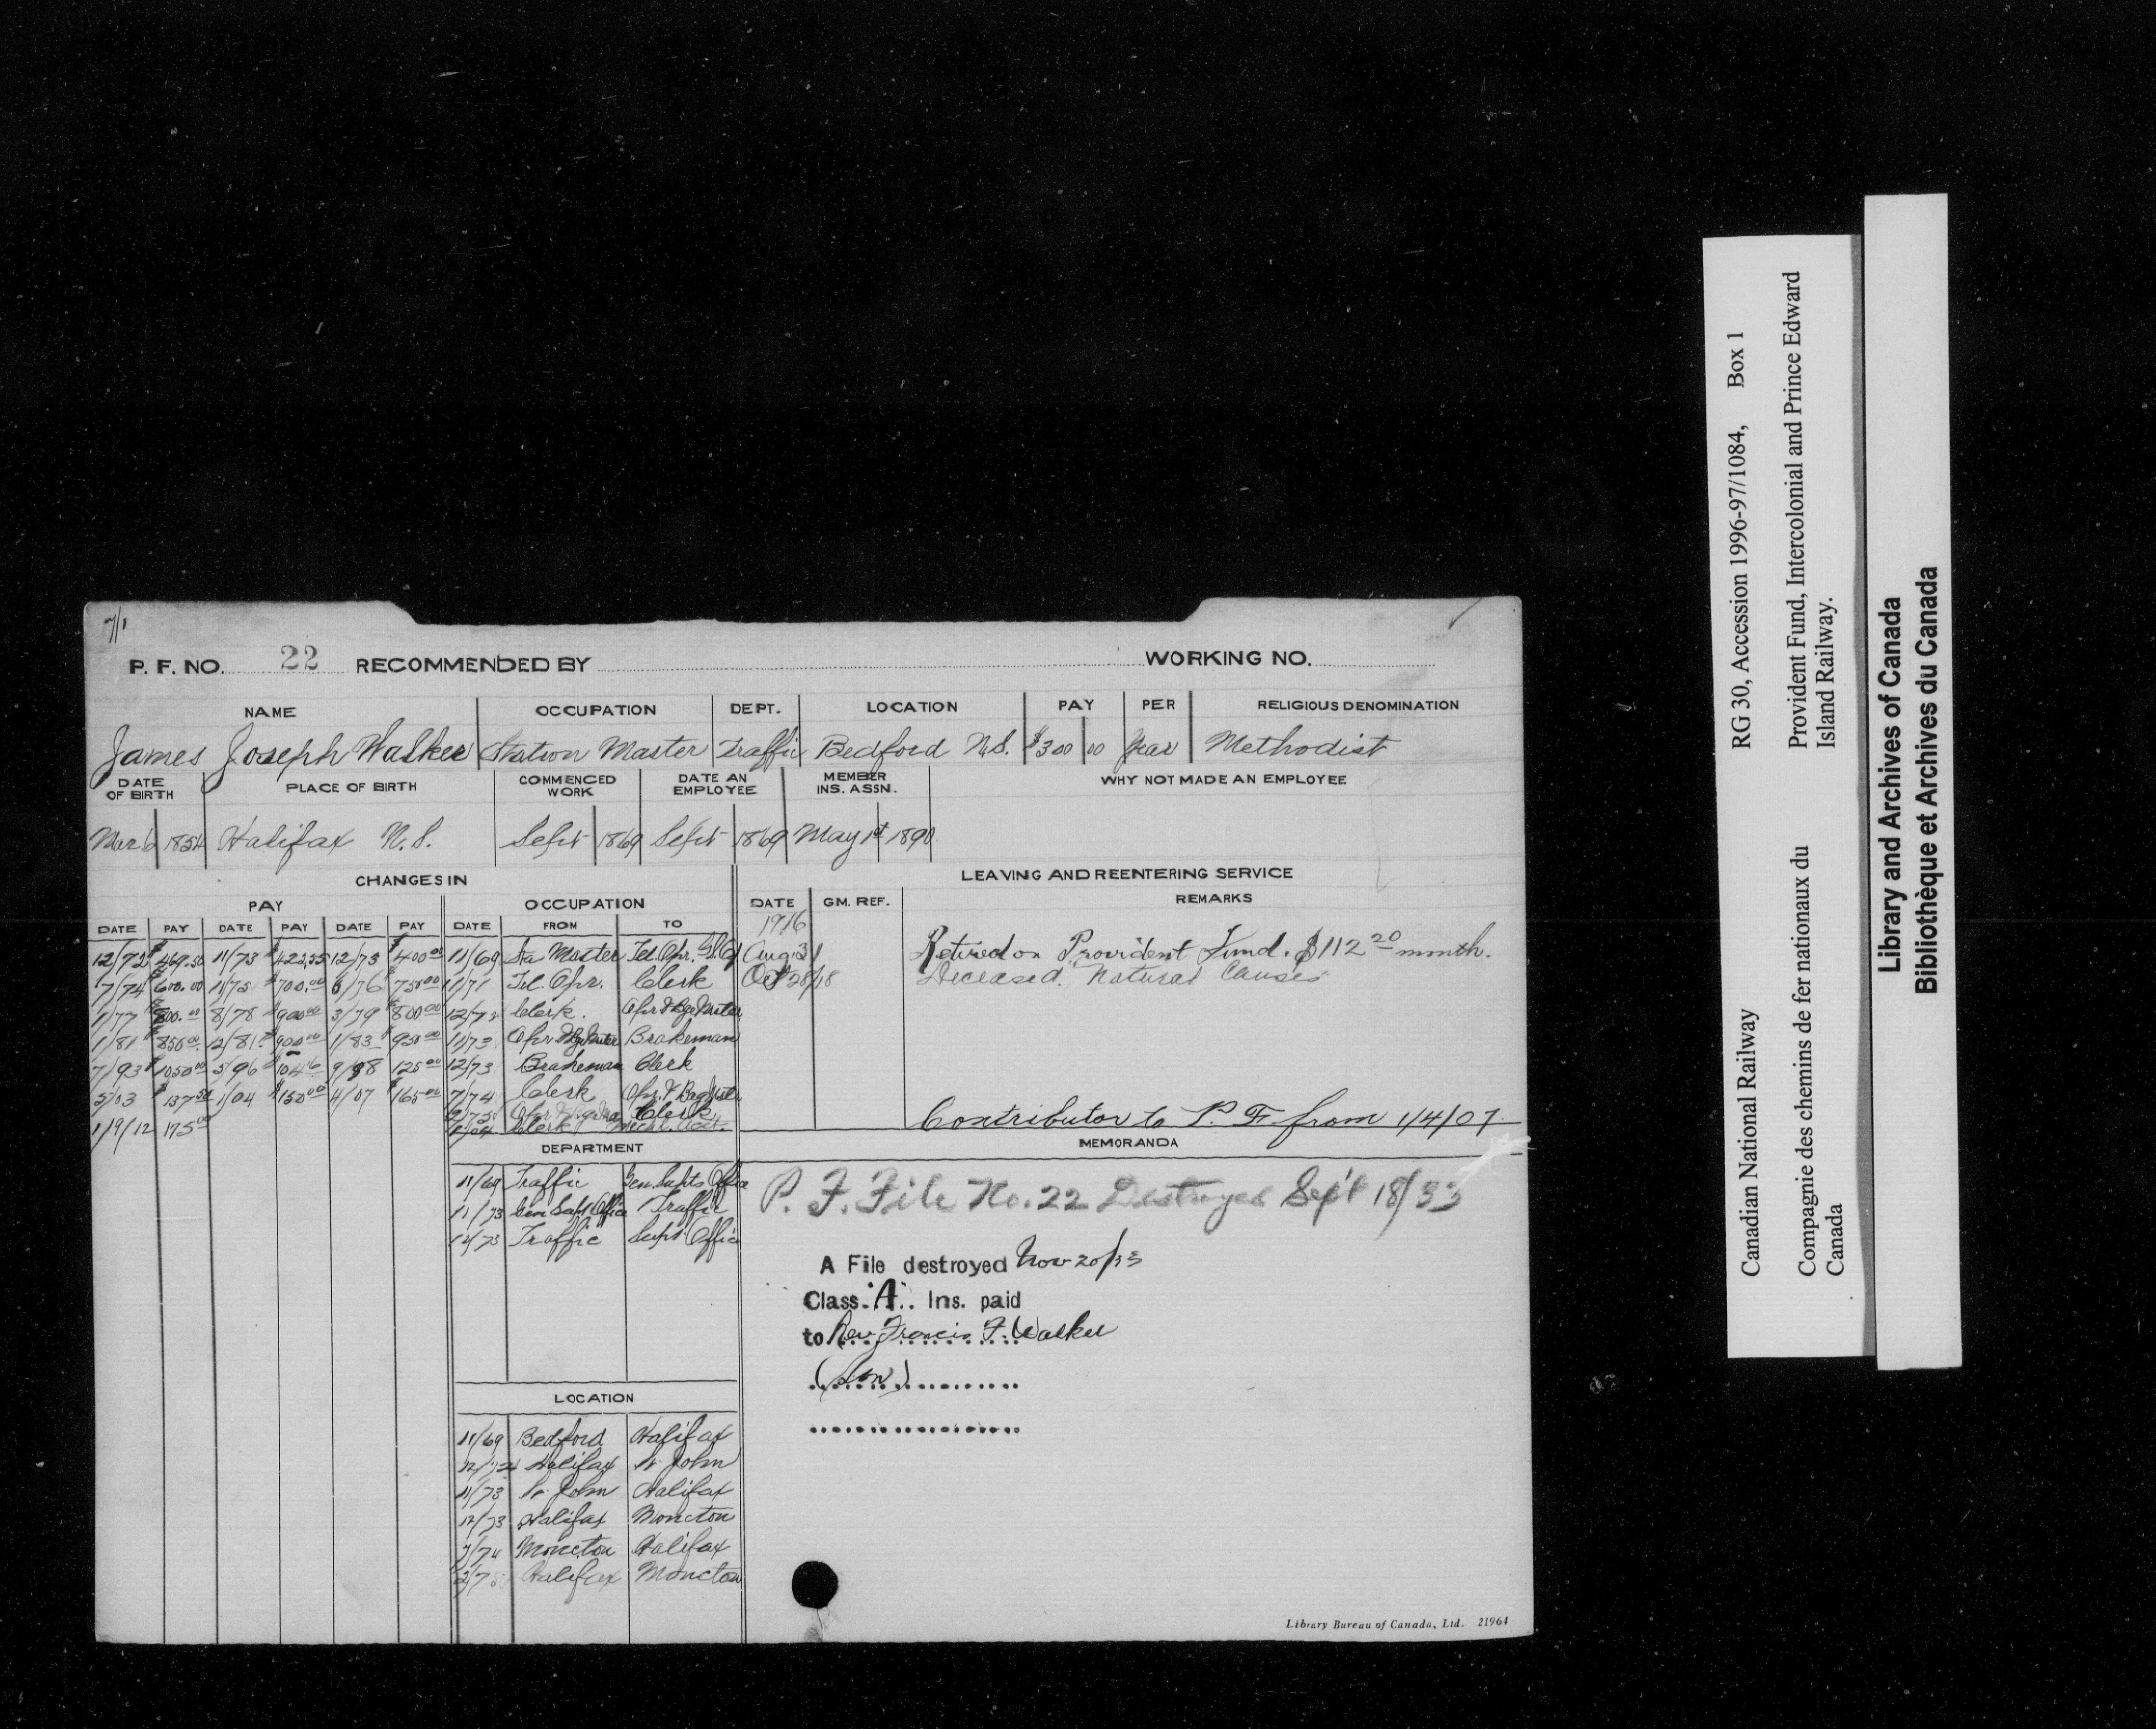 7/1
P. F. NO. 22 RECOMMENDED BY WORKING NO.
NAME OCCUPATION DEPT. LOCATION PAY PER RELIGIOUS DENOMINATION
James Joseph Walker Station Master Traffic Bedford N.S. $300 00 Year Methodist
DATE OF BIRTH PLACE OF BIRTH COMMENCED WORK DATE AN EMPLOYEE MEMBER INS. ASSN. WHY NOT MADE AN EMPLOYEE
Mar 6 1854 Halifax N.S. Sept 1869 Sept 1869 May 1st 1890
CHANGES IN LEAVING AND REENTERING SERVICE
PAY OCCUPATION DATE GM. REF. REMARKS
DATE PAY DATE PAY DATE PAY DATE FROM TO 1916
12/72 $469.50 11/73 $422.55 12/73 $400 00 11/69 Sta Master Tel. Opr. Aug 31 Retired on Provident Fund. $112 20 month.
7/74 600.00 11/75 $700.00 6/76 $750 00 11/71 Tel. Opr. Clerk Oct 28/18 Deceased. Natural Causes
1/77 $800.00 8/78 $900 00 3/79 $800 00 12/72 Clerk.
1/81 $850 00 12/81 $900 00 1/83 $950 00 11/73 Brakeman
7/93 $1050 00 5/96 9/98 125 00 12/73 Brakeman Clerk
5/03 $137 50 1/04 $150 00 4/07 $165 00 7/74 Clerk
Clerk
1/9/12 175 00 Clerk
Contributor to P. F. from 1/4/07
DEPARTMENT MEMORANDA
11/69 Traffic Gen. Supts Office
11/73 Gen Supt Office Traffic
12/73 Traffic Supt Office
P. F. File No. 22 Destroyed Sept 18/33
A File destroyed Nov 20/33
Class "A" Ins. paid
to Rev Francis F. Walker
(Son)
LOCATION
11/69 Bedford Halifax
12/72 Halifax St John
11/73 St John Halifax
12/73 Halifax Moncton
7/74 Moncton Halifax
Halifax Moncton
Library Bureau of Canada, Ltd. 21964
Canadian National Railway RG 30, Accession 1996-97/1084, Box 1
Compagnie des chemins de fer nationaux du Canada
Provident Fund, Intercolonial and Prince Edward Island Railway.
Library and Archives of Canada
Bibliothèque et Archives du Canada